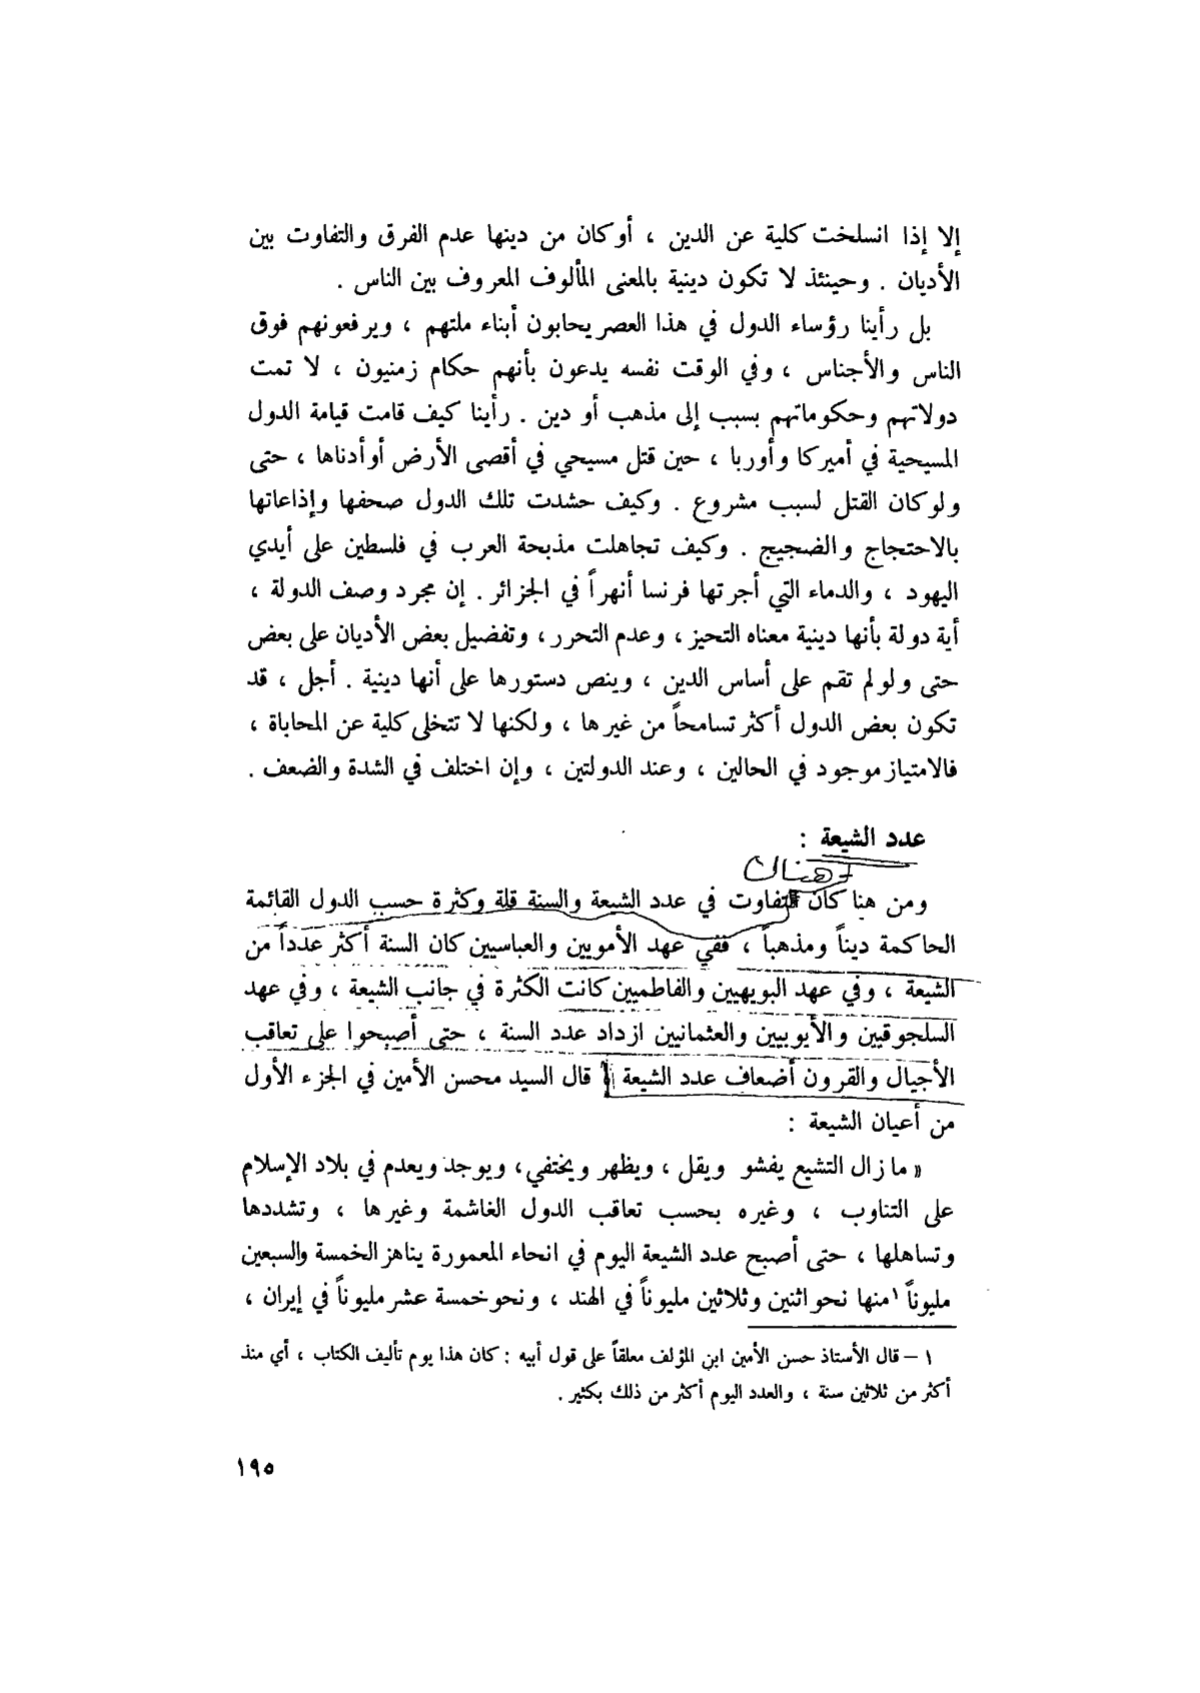 إلا إذا انسلخت كلية عن الدين ، أو كان من دينها عدم الفرق والتفاوت بين
الأديان . وحينئذ لا تكون دينية بالمعنى المألوف المعروف بين الناس .
بل رأينا رؤساء الدول في هذا العصر يحابون أبناء ملتهم ، ويرفعونهم فوق
الناس والأجناس ، وفي الوقت نفسه يدعون بأنهم حكام زمنيون ، لا تمت
دولاتهم وحكوماتهم بسبب إلى مذهب أو دين . رأينا كيف قامت قيامة الدول
المسيحية في أميركا وأوربا ، حين قتل مسيحي في أقصى الأرض أو أدناها ، حتى
ولو كان القتل لسبب مشروع . وكيف حشدت تلك الدول صحفها وإذاعاتها
بالاحتجاج والضجيج . وكيف تجاهلت مذبحة العرب في فلسطين على أيدي
اليهود ، والدماء التي أجرتها فرنسا أنهراً في الجزائر . إن مجرد وصف الدولة ،
أية دولة بأنها دينية معناه التحيز ، وعدم التحرر ، وتفضيل بعض الأديان على بعض
حتى ولو لم تقم على أساس الدين ، وينص دستورها على أنها دينية . أجل ، قد
تكون بعض الدول أكثر تسامحاً من غيرها ، ولكنها لا تتخلى كلية عن المحاباة ،
فالامتياز موجود في الحالين ، وعند الدولتين ، وإن اختلف في الشدة والضعف .
عدد الشيعة :
هناك
ومن هنا كان التفاوت في عدد الشيعة والسنة قلة وكثرة حسب الدول القائمة
الحاكمة ديناً ومذهباً ، ففي عهد الأمويين والعباسيين كان السنة أكثر عدداً من
الشيعة ، وفي عهد البويهيين والفاطميين كانت الكثرة في جانب الشيعة ، وفي عهد
السلجوقيين والأيوبيين والعثمانيين ازداد عدد السنة ، حتى أصبحوا على تعاقب
الأجيال والقرون أضعاف عدد الشيعة قال السيد محسن الأمين في الجزء الأول
من أعيان الشيعة :
« ما زال التشيع يفشو ويقل ، ويظهر ويختفي ، ويوجد ويعدم في بلاد الإسلام
على التناوب ، وغيره بحسب تعاقب الدول الغاشمة وغيرها ، وتشددها
وتساهلها ، حتى أصبح عدد الشيعة اليوم في انحاء المعمورة يناهز الخمسة والسبعين
مليوناً ١ منها نحو اثنين وثلاثين مليوناً في الهند ، ونحو خمسة عشر مليوناً في إيران ،
١ – قال الأستاذ حسن الأمين ابن المؤلف معلقاً على قول أبيه : كان هذا يوم تأليف الكتاب ، أي منذ
أكثر من ثلاثين سنة ، والعدد اليوم أكثر من ذلك بكثير .
١٩٥